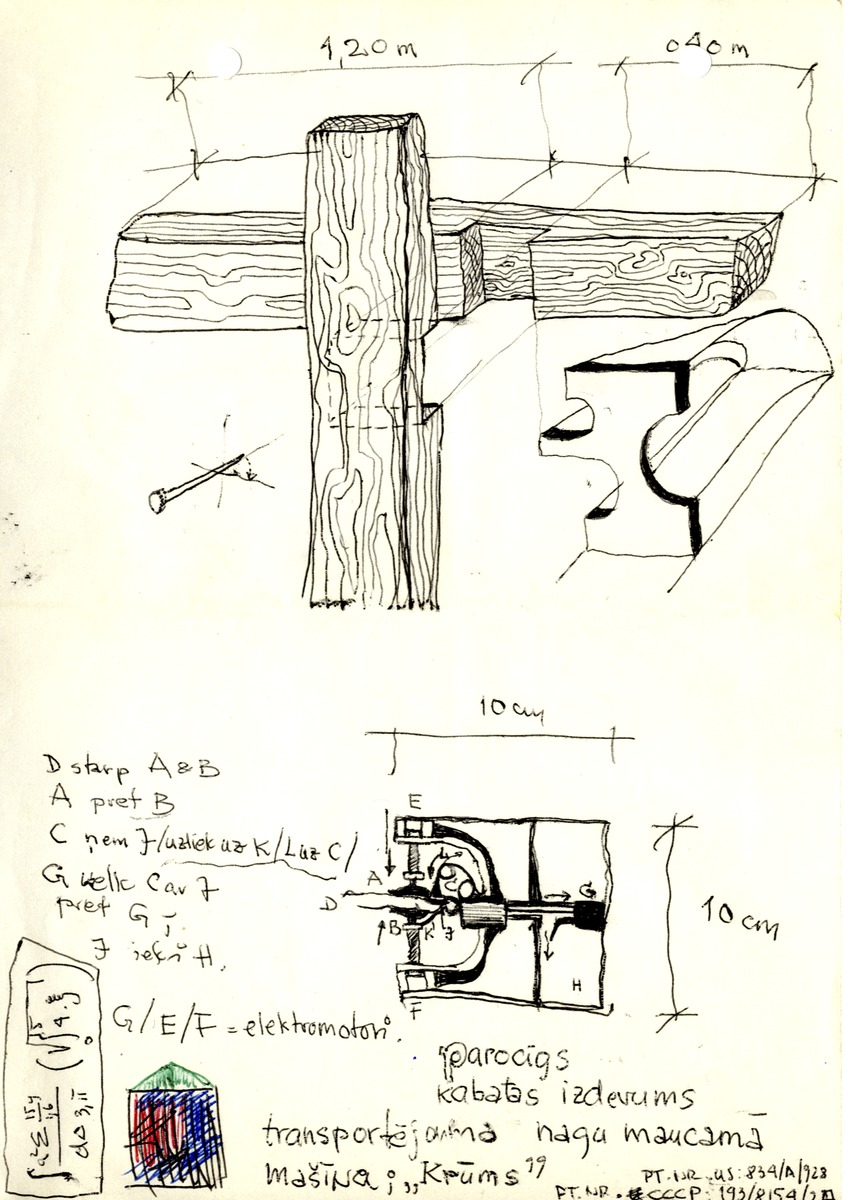 1,20 m
040 m
10 cm
D starp A & B
A pret B
C ņem J/uzliek uz K/L uz C/
G velk C ar J
pret G ;
J iekš H.
E
A
D
B
K
J
G
H
F
10 cm
G/E/F = elektromotori.
parocīgs
kabatas izdevums
transportējama nagu maucamā
mašīna ; „Krūms"
PT. NR. US: 834/A/928
PT. NR. CCCP: 193/8154/